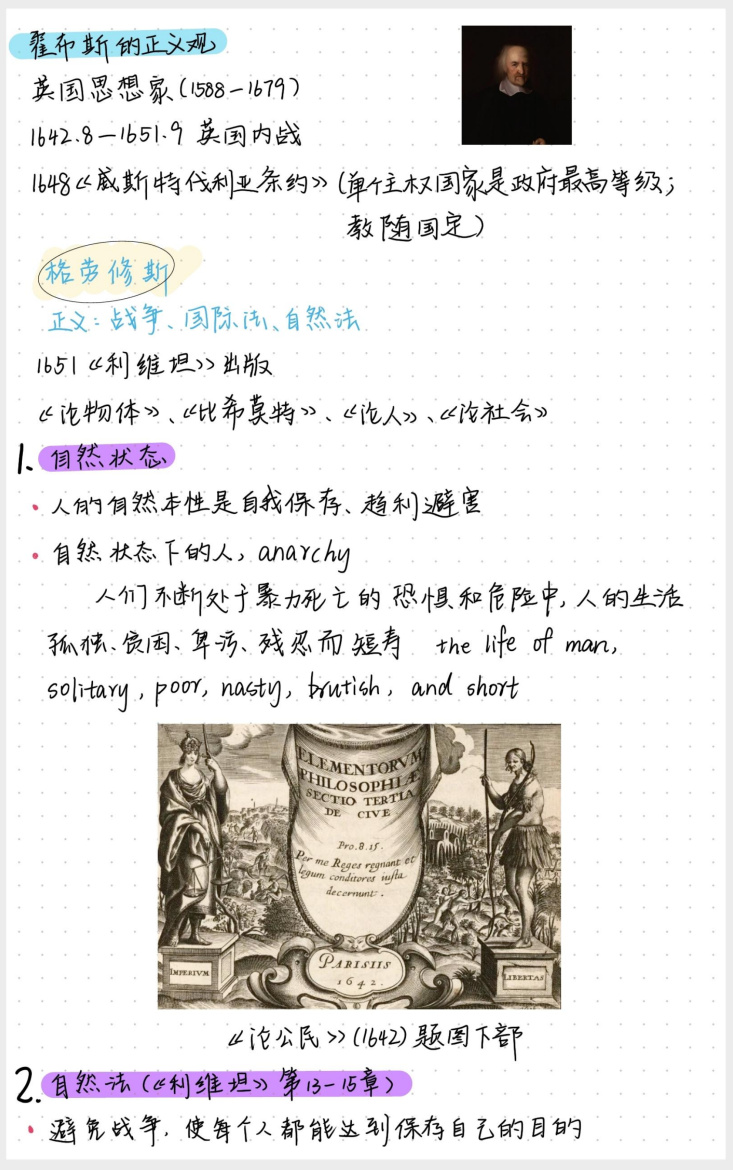 霍布斯的正义观
英国思想家(1588-1679)
1642.8-1651.9 英国内战
1648《威斯特伐利亚条约》(单个主权国家是政府最高等级;
教随国定)
格劳修斯
正义:战争、国际法、自然法
1651《利维坦》出版
《论物体》、《比希莫特》、《论人》、《论社会》
1. 自然状态
• 人的自然本性是自我保存、趋利避害
• 自然状态下的人, anarchy
人们不断处于暴力死亡的恐惧和危险中,人的生活
孤独、贫困、卑污、残忍而短寿 the life of man,
solitary, poor, nasty, brutish, and short
ELEMENTORVM
PHILOSOPHIÆ
SECTIO TERTIA
DE CIVE
Pro.8.15.
Per me Reges regnant et
legum conditores iusta
decernunt.
IMPERIVM
PARISIIS
1642.
LIBERTAS
《论公民》(1642)题图下部
2. 自然法(《利维坦》第13-15章)
• 避免战争,使每个人都能达到保存自己的目的